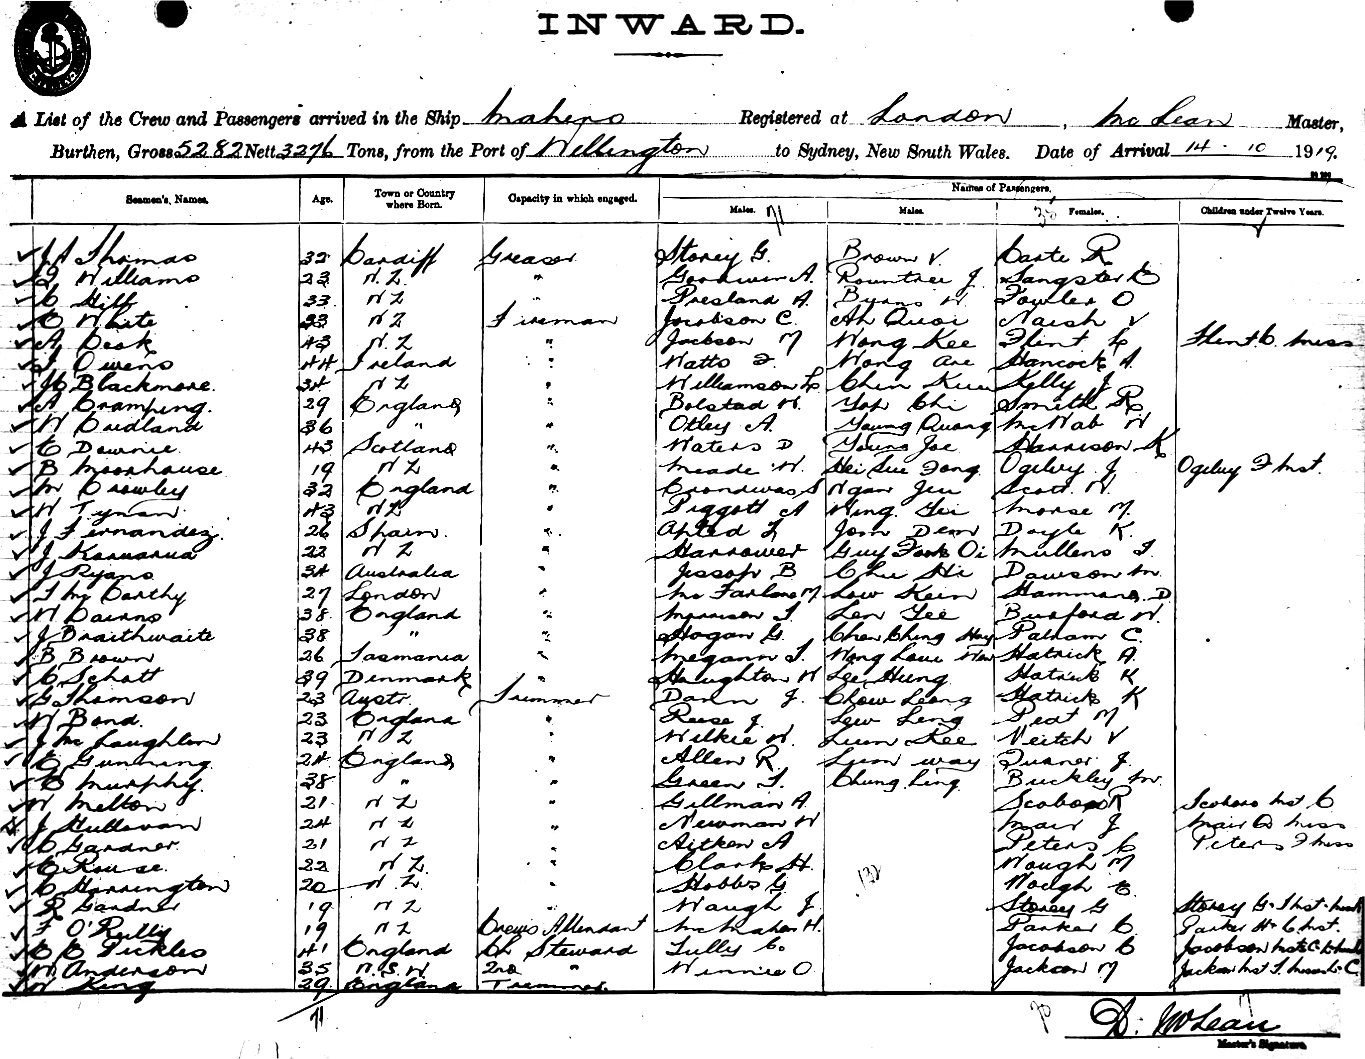 INWARD.
A List of the Crew and Passengers arrived in the Ship Maheno Registered at London, McLean Master,
Burthen, Gross 5282 Nett 3276 Tons, from the Port of Wellington to Sydney, New South Wales. Date of Arrival 14 - 10 1919.
Names of Passengers.
Seamen's Names. Age. Town or Country where Born. Capacity in which engaged. Males. 71 Males. Females. Children under Twelve Years.
Thomas 32 Cardiff Greaser Storey G. Brown V. Carte R
Williams 23 N.Z. " Goodwin A. Rountree J. Sangster
33 N Z " Presland A. Byrns W. Fowler O
White 33 N Z Fireman Jacobson C. Ah Quoi Naish V
A 43 N.Z " Jackson M Wong Kee Flint Flint C. Miss
Owens 44 Ireland " Watts F. Wong Hancock A.
Blackmore. 34 N Z " Williamson Chin Kelly J
A Cramping. 29 England " Bolstad W. Yop Chi Smith R
W Cudland 36 " " Otley A. Young Quong McNab W
C Downie 43 Scotland " Waters D Young Joe Harrison K
B Moorhouse 19 N Z " Meade W. Hei Sue Fong Ogilvy J Ogilvy F Mst.
M Crowley 32 England " Ngan Scott. W.
W Tynan. 43 NZ " Piggott A Wing Morse M.
J Fernandez. 26 Spain. " Jom Dem Doyle K.
J 22 N Z " Harrower Guy Fook Oi Mullens T.
J Ryans 34 Australia " Jessop B Dawson M.
T McCarthy 27 London " McFarlane M Low Kein Hammond. D
W Cairns 38 England " Morrison T. Len Yee Burford W.
J Braithwaite 38 " " Hogan G. Chan Ching Palham C.
B Brown 26 Tasmania " Megann T. Wong Hatrick A.
C Schott 39 Denmark " Haughton W Lee Hung Hatrick K
G Thomson 23 Austr. Trimmer Dann J. Chow Leong Hatrick K
W Bond. 23 England " Reese J. Lew Leng Peat M
J McLaughton 23 N Z " Wilkie W. Lum Kee Veitch V
C Gunning. 24 England " Allen R. Lum Way Turner J.
C Murphy. 38 " " Green T. Chung Ling Buckley M.
W Melton 21 N Z " Gillman A. R Mst C
J 24 N Z " Newman W Mair J Mair D Miss
C Gardner. 21 N Z " Aitken A Peters C Peters F Miss
C Rouse. 22 N Z. " Clark H. Waugh M
C Harrington 20 N Z. " Hobbs G Waugh
R Gardner 19 N Z " Waugh J. Storey G Storey G. Mst.
F O'Rully 19 N Z Crews Attendant McMahon H. Parker C. Parker C Mst.
C C Pickles 41 England Ch Steward Tully C. Jacobson C Jacobson Mst C.
W Anderson 35 N.S.W 2nd " Winnie O. Jackson M Jackson Mst T.
W King 29 England Trimmer.
71
132
D. McLean
Master's Signature.